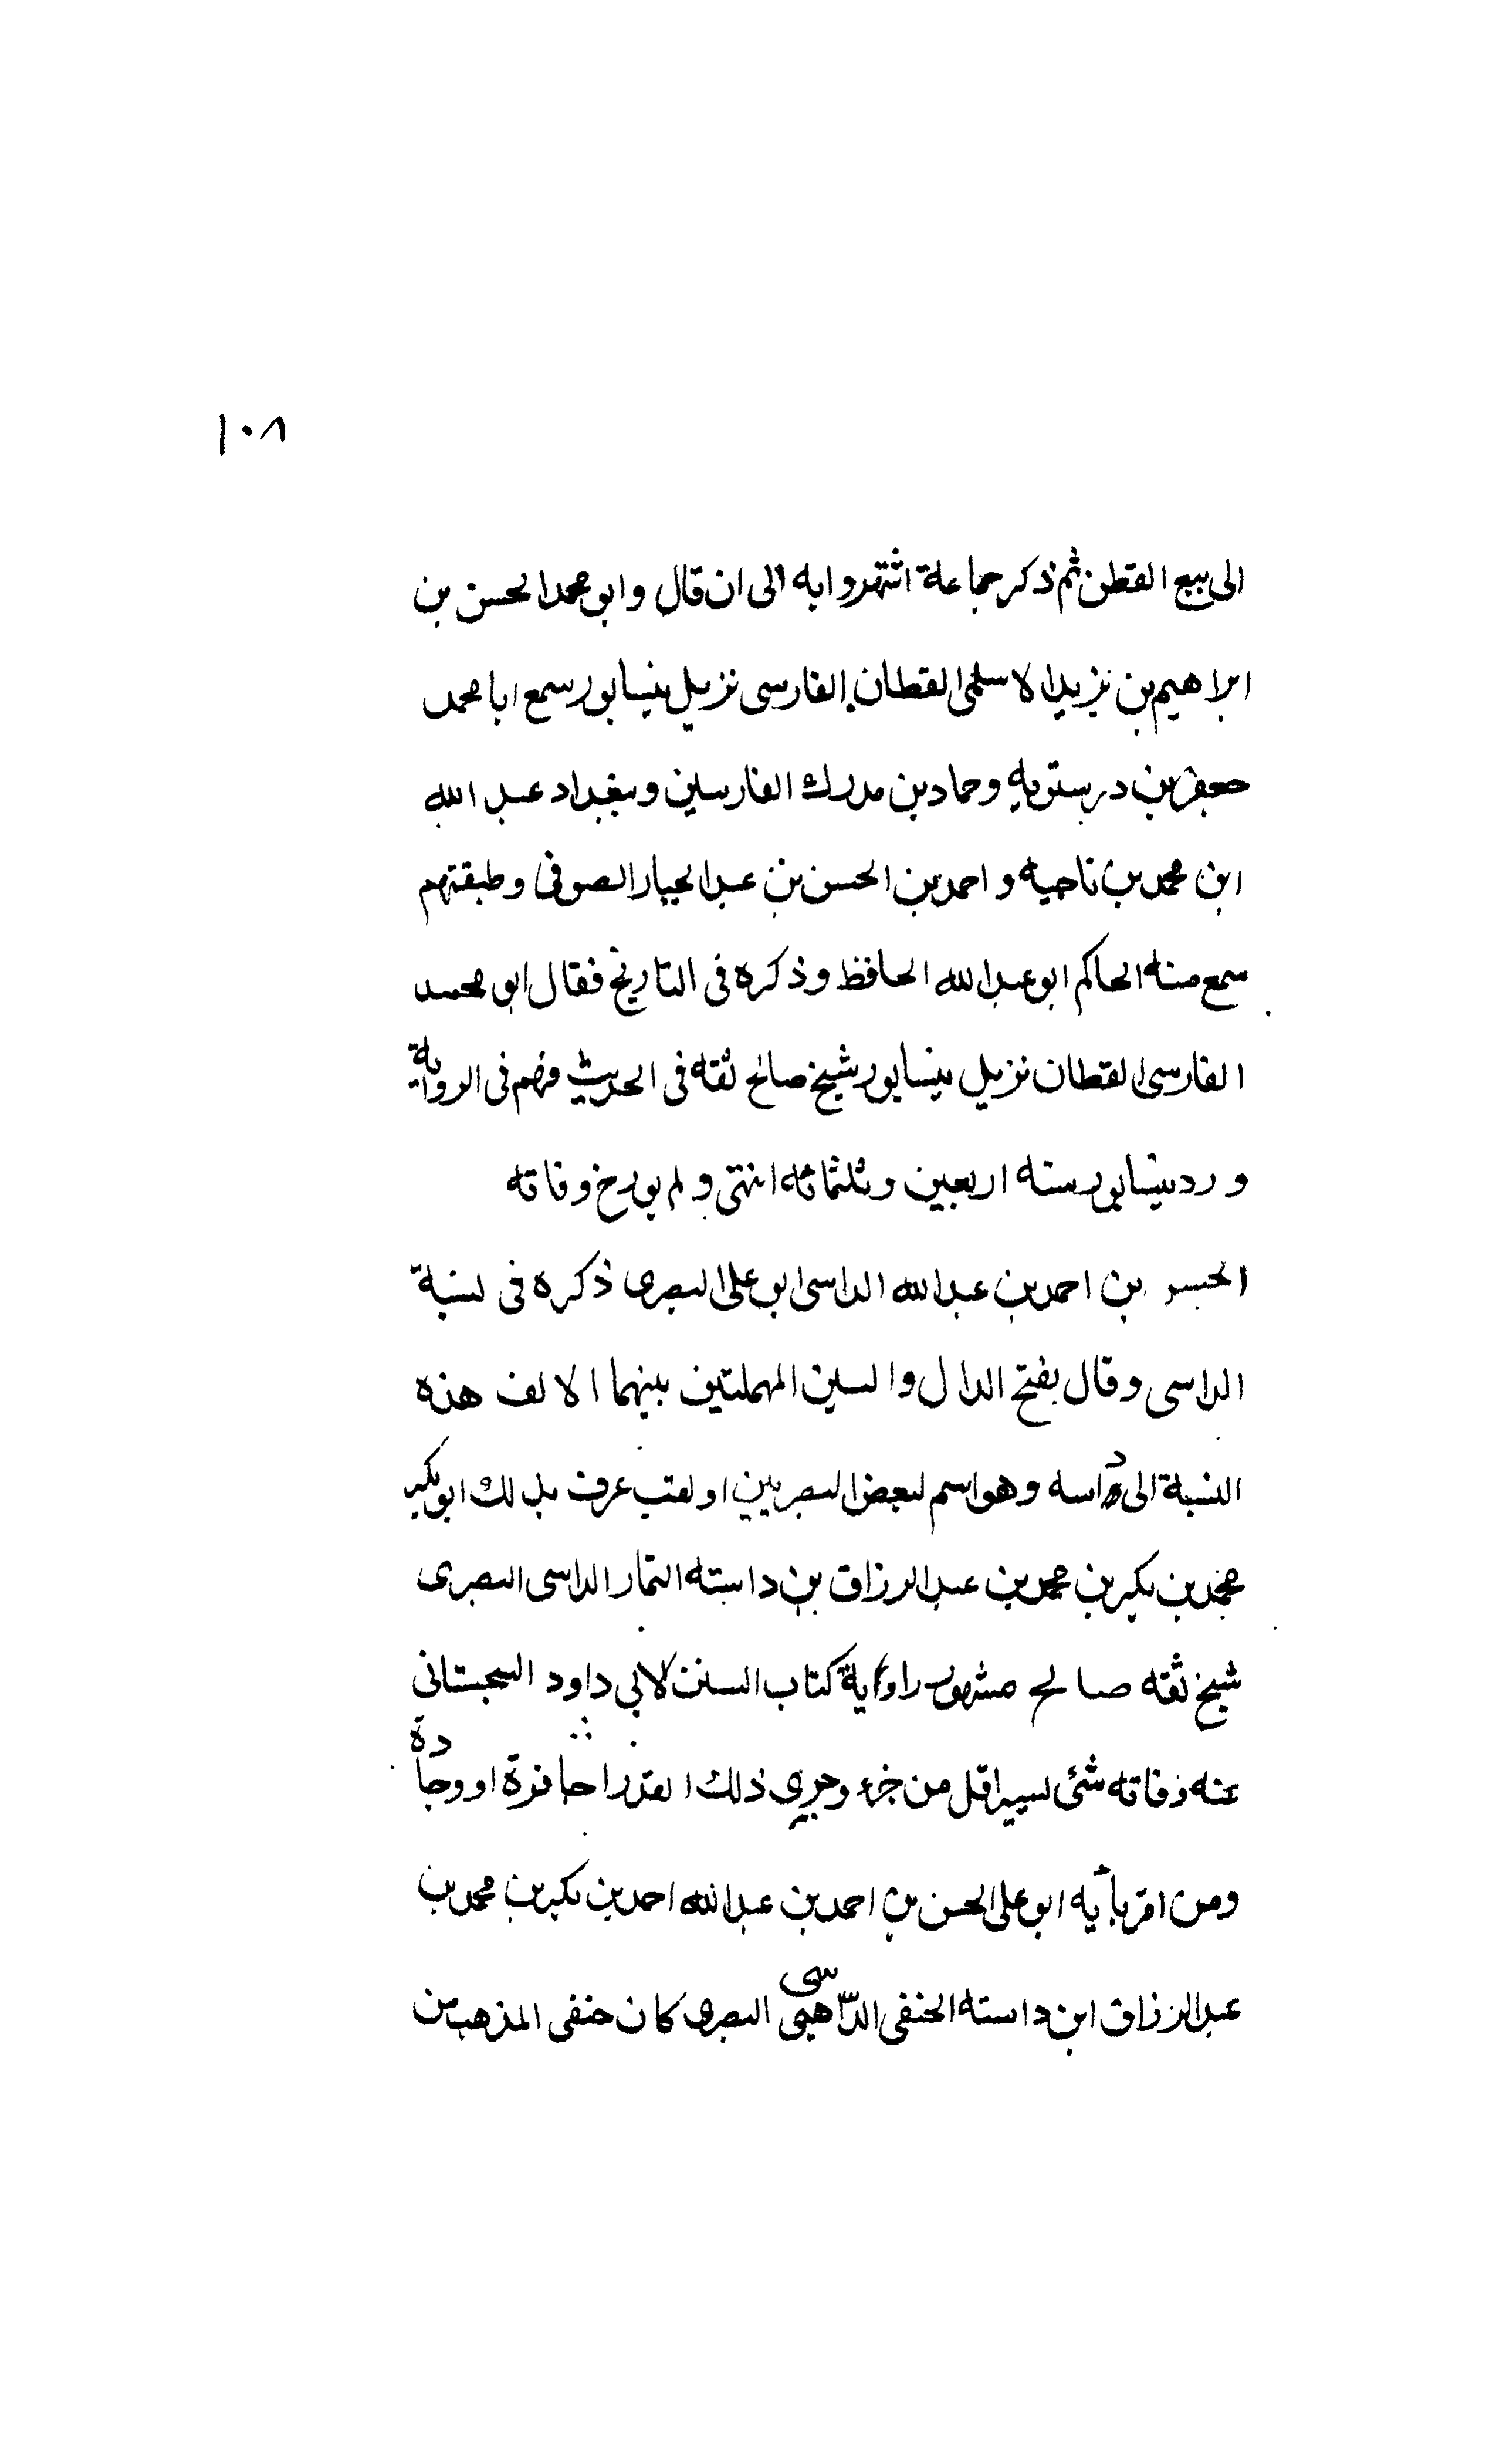 ١٠٨
الى بيع القطن ثم ذكر جماعة اشتهروا به الى ان قال وابو محمد الحسن بن
ابراهيم بن يزيد الاسلمى القطان الفارسى نزيل نيسابور سمع ابا محمد
جعفر بن درستويه وحماد بن مدرك الفارسين وببغداد عبد الله
ابن محمد بن ناجيه و احمد بن الحسن بن عبد الجبار الصوفى وطبقتهم
سمع منه الحاكم ابو عبد الله الحافظ وذكره فى التاريخ فقال ابو محمد
الفارسى القطان نزيل نيسابور شيخ صالح ثقه فى الحديث فهم فى الرواية
ورد نيسابور سنه اربعين وثلثمائه انتهى و لم يورخ وفاته
الحسن بن احمد بن عبد الله الداسى ابو على البصرى ذكره فى نسبة
الداسى وقال بفتح الدال والسين المهملتين بينهما الالف هذه
النسبة الى داسه وهو اسم لبعض البصريين او لقب عرف بذلك ابو بكر
محمد بن بكر بن محمد بن عبد الرزاق بن داسته التمار الداسى البصرى
شيخ ثقه صالح مشهور راوية كتاب السنن لابي داود السجستانى
عنه وفاته شئ يسير اقل من جزء و ذلك القدر اجازة او وجادة
ومن اقربائه ابو على الحسن بن احمد بن عبد الله احمد بن بكر بن محمد بن
عبد الرزاق ابن داسته الحنفى الداسى البصرى كان حنفى المذهب من